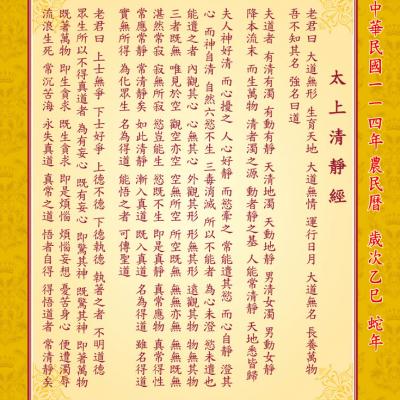 中華民國一一四年 農民曆 歲次乙巳 蛇年
太上清靜經
老君曰 大道無形 生育天地 大道無情 運行日月 大道無名 長養萬物
吾不知其名 強名曰道
夫道者 有清有濁 有動有靜 天清地濁 天動地靜 男清女濁 男動女靜
降本流末 而生萬物 清者濁之源 動者靜之基 人能常清靜 天地悉皆歸
夫人神好清 而心擾之 人心好靜 而慾牽之 常能遣其慾 而心自靜 澄其
心 而神自清 自然六慾不生 三毒消滅 所以不能者 為心未澄 慾未遣也
能遣之者 內觀其心 心無其心 外觀其形 形無其形 遠觀其物 物無其物
三者既無 唯見於空 觀空亦空 空無所空 所空既無 無無亦無 無無既無
湛然常寂 寂無所寂 慾豈能生 慾既不生 即是真靜 真常應物 真常得性
常應常靜 常清靜矣 如此清靜 漸入真道 既入真道 名為得道 雖名得道
實無所得 為化眾生 名為得道 能悟之者 可傳聖道
老君曰 上士無爭 下士好爭 上德不德 下德執德 執著之者 不明道德
眾生所以不得真道者 為有妄心 既有妄心 即驚其神 既驚其神 即著萬物
既著萬物 即生貪求 既生貪求 即是煩惱 煩惱妄想 憂苦身心 便遭濁辱
流浪生死 常沉苦海 永失真道 真常之道 悟者自得 得悟道者 常清靜矣